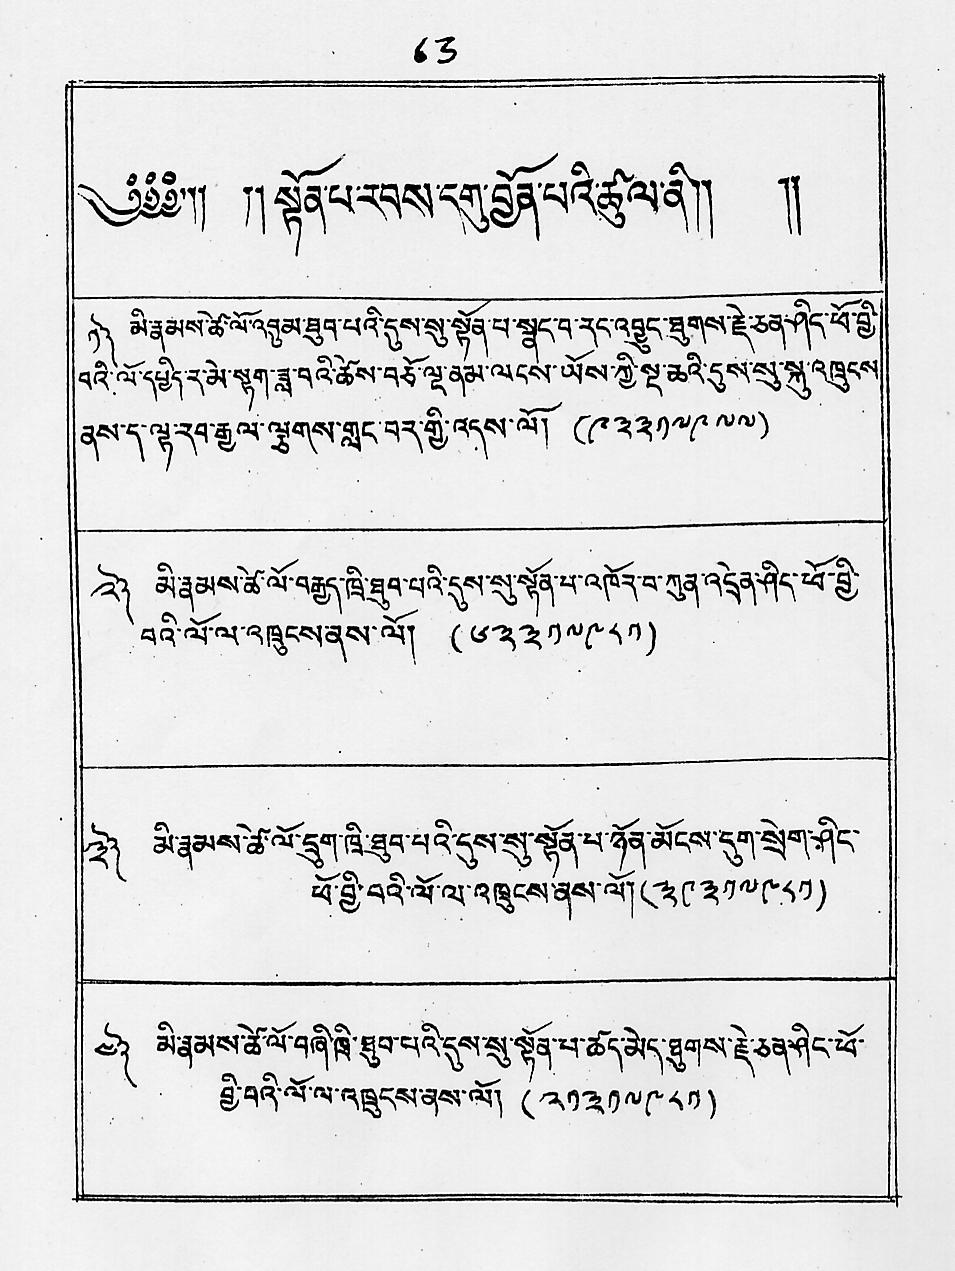 63
༄༅༅༅།། །།སྟོན་པ་རབས་དགུ་བྱོན་པའི་ཚུལ་ནི།། །།
༡༽ མི་རྣམས་ཚེ་ལོ་འབུམ་ཐུབ་པའི་དུས་སུ་སྟོན་པ་སྣང་བ་རང་འབྱུང་ཐུགས་རྗེ་ཅན་ཤིང་ཕོ་བྱི་
བའི་ལོ་དཔྱིད་ར་མེ་སྟག་ཟླ་བའི་ཚེས་བཅོ་ལྔ་ནམ་ལངས་ཡོས་ཀྱི་སྔ་ཆའི་དུས་སུ་སྐུ་འཁྲུངས
ནས་ད་ལྟ་རབ་རྒྱལ་ལྕགས་གླང་བར་གྱི་འདས་ལོ། (༩༣༣༡༧༩༧༧)
༢༽ མི་རྣམས་ཚེ་ལོ་བརྒྱད་ཁྲི་ཐུབ་པའི་དུས་སུ་སྟོན་པ་འཁོར་བ་ཀུན་འདྲེན་ཤིང་ཕོ་བྱི་
བའི་ལོ་ལ་འཁྲུངས་ནས་ལོ། (༦༣༣༡༧༩༨༡)
༣༽ མི་རྣམས་ཚེ་ལོ་དྲུག་ཁྲི་ཐུབ་པའི་དུས་སུ་སྟོན་པ་ཉོན་མོངས་དུག་སྲེག་ཤིང་
ཕོ་བྱི་བའི་ལོ་ལ་འཁྲུངས་ནས་ལོ། (༣༩༣༡༧༩༨༡)
༤༽ མི་རྣམས་ཚེ་ལོ་བཞི་ཁྲི་ཐུབ་པའི་དུས་སུ་སྟོན་པ་ཚད་མེད་ཐུགས་རྗེ་ཅན་ཤིང་ཕོ་
བྱི་བའི་ལོ་ལ་འཁྲུངས་ནས་ལོ། (༢༡༣༡༧༩༨༡)